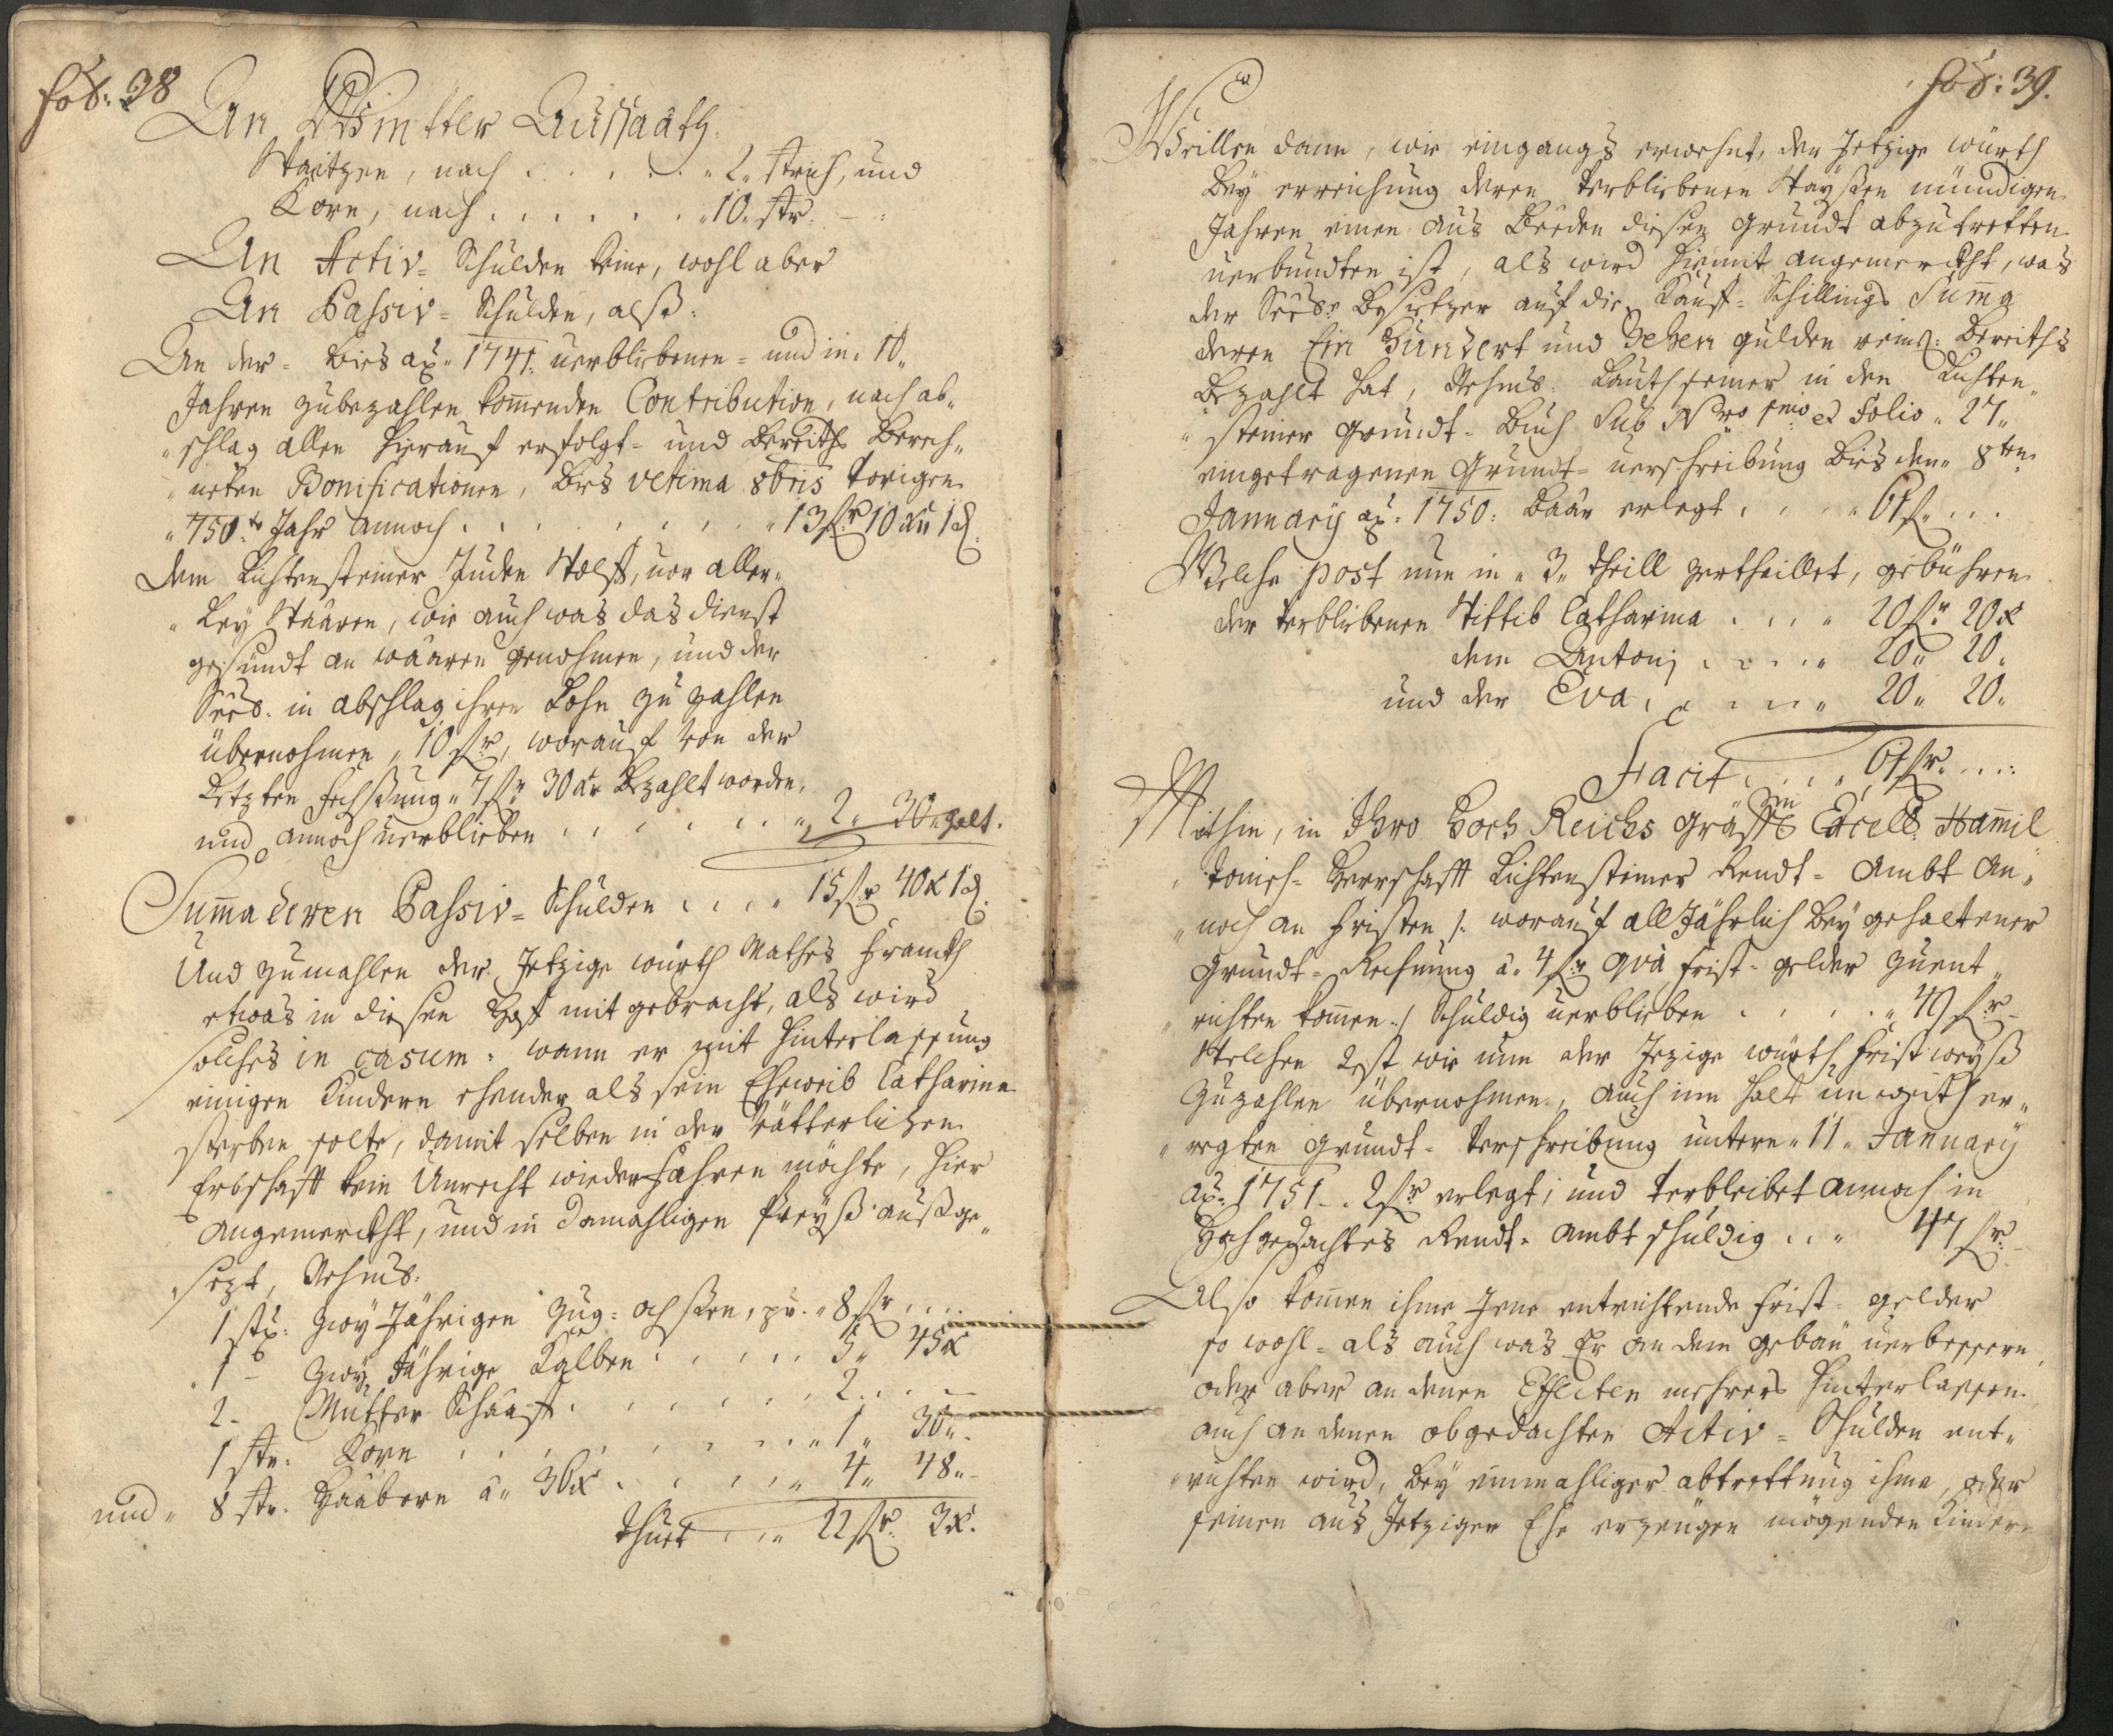 fol: 38
An Wintter Aussaath.
Waitzen, nach . . . . . . 2. strich, und
Korn, nach . . . . . . 10. str.
An Activ- Schulden keine, wohl aber
An Passiv- Schulden, alß:
An der- bies aõ 1741: verbliebenen- und in 10
Jahren zubezahlen kom̄enden Contribution, nach ab-
schlag allen hierauf erfolgt- und bereiths berech-
neten Bonificationen, bies ultima 8bris vorigen
1750.te Jahr annoch . . . . . . 13 fl. 10 xr 1 d.
dem Lichtensteiner Juden Wolff, vor aller-
ley Waaren, wie auch was das dienst
gesundt an waaren genohmen, und der
in abschlag ihren Lohn zu zahlen
übernohmen 10 fl., worauf von der
Letzten fechßung 7 fl. 30 xr bezahlt worden,
und annoch verblieben . . . . . . 2. 30.
Sum̄a deren Passiv- Schulden . . . . 15 fl. 40 x 1 d.
Und zumahlen der Jetzige würth Mathes
etwas in diesen Hof mit gebracht, als wird
solches in casum: wann er mit hinterlassung
einigen Kindern ehender als sein Eheweib Catharina
sterben solte, damit selben in der Vätterlichen
Erbschafft kein Unrecht wiederfahren möchte, hier
angemerckht, und in damahligen Preyß außge-
sezt, Nehmb:
1 stk: Zwey Jährigen Zug- ochßen, pr. 8 fl. . . .
1 - Zwey Jährige Kalben . . . . . 5. 45 x
2 - Mutter Schaaff . . . . . . 2. . . —
1 str. Korn . . . . . . . 1. 30.
und 8 str. Haabern â 36 x . . . . . 4. 48.
thuet . . . 22 fl. 3 x.
fol: 39.
Weillen dann, wie eingangs erwehnt, der Jetzige würth
bey erreichung deren verbliebenen Wayßen mündigen
Jahren einen aus beeden diesen grundt abzutretten
verbundten ist, als wird hiemit angemerckht, was
der besitzer auf die Kauf- Schillings Sum̄a
deren Ein Hundert und Zehen gulden rein: bereiths
bezahlt hat, Nehmb: Lauth seiner in den Lichten-
steiner grundt- Buch Sub Nro et Folio 27
eingetragenen Grundt- verschreibung bies den 8ten
January aõ: 1750: baar erlegt . . . . 61 fl. . .
Welche post nun in 3. theill zertheillet, gebühren
der verbliebenen Wittib Catharina . . . 20 fl. 20 x
dem Antonj . . . . 20. 20.
und der Eva . . . . . 20. 20.
Facit . . . . 61 fl. . . .
Mithin, in Ihro Hoch Reichs gräffl. Excell: Ham̄il
tonisch- Herrschafft Lichtensteiner Rendt- Ambt an-
noch an fristen /: worauf all Jährlich bey gehaltener
Grundt- Rechnung â 4 fl. qvà frist- gelder zuent-
richten kom̄en :/ Schuldig verblieben . . . . 49 fl.
Welchen Rest wie nun der Jezige würth fristweyß
zuzahlen übernohmen, auch
regten grundt- verschreibung untern 11 January
aõ: 1751. 2 fl. erlegt; und verbleibet annoch in
Hochgedachtes Rendt- Ambt schuldig . . 47 fl.
Also kom̄en ihme Jene entrichtende frist- gelder
so wohl- als auch was Er an dem gebäu verbessern
oder aber an denen Effecten mehrers hinterlassen
auch an denen obgedachten Activ- Schulden ent-
richten wird, bey einmahliger abtrettung ihme, oder
seinen aus Jetziger Ehe erzeugen mögenden Kindern